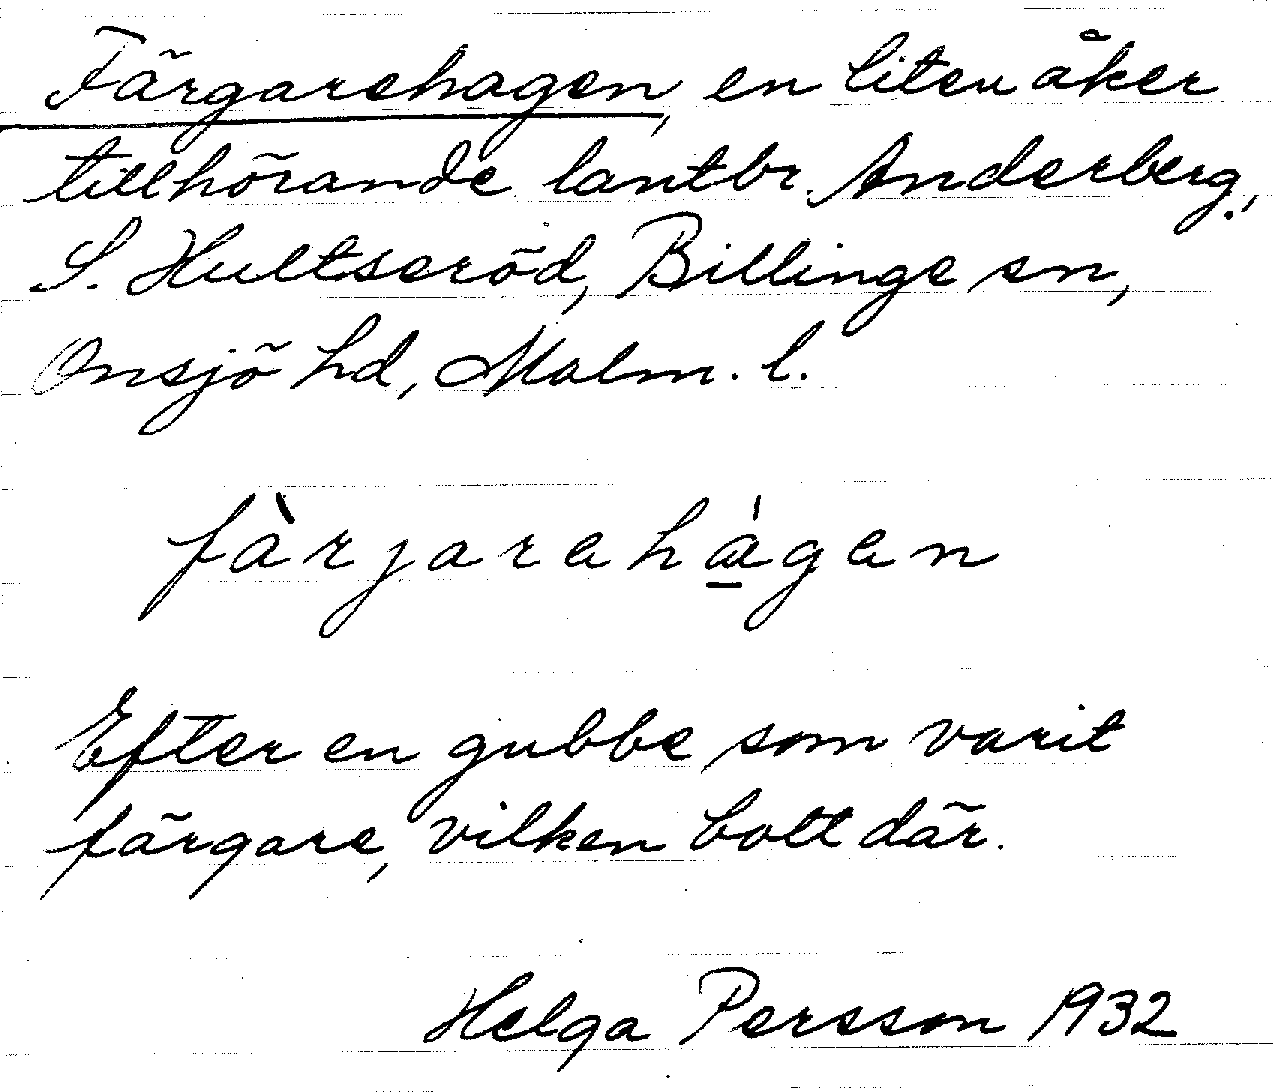 Färgarehagen, en liten åker
tillhörande lantbr. Anderberg,
S. Hultseröd, Billinge sn,
Onsjö hd, Malm. l.
fàrjarehά̲gen
Efter en gubbe som varit
färgare, vilken bott där.
Helga Persson 1932